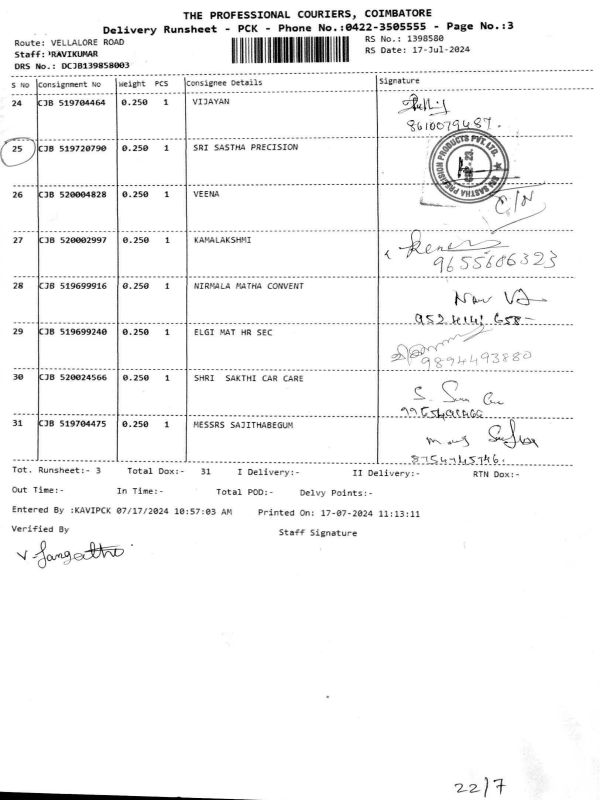 THE PROFESSIONAL COURIERS, COIMBATORE
Delivery Runsheet - PCK - Phone No.:0422-3505555 - Page No.:3
Route: VELLALORE ROAD
RS No.: 1398580
Staff: RAVIKUMAR
RS Date: 17-Jul-2024
DRS No.: DCJB139858003
S No Consignment No Weight PCS Consignee Details Signature
24 CJB 519704464 0.250 1 VIJAYAN
8610079487.
25 CJB 519720790 0.250 1 SRI SASTHA PRECISION
SRI SASTHA PRECISION PRODUCTS PVT. LTD.
26 CJB 520004828 0.250 1 VEENA
C/N
27 CJB 520002997 0.250 1 KAMALAKSHMI
9655606323
28 CJB 519699916 0.250 1 NIRMALA MATHA CONVENT
29 CJB 519699240 0.250 1 ELGI MAT HR SEC
9894493880
30 CJB 520024566 0.250 1 SHRI SAKTHI CAR CARE
31 CJB 519704475 0.250 1 MESSRS SAJITHABEGUM
Tot. Runsheet:- 3 Total Dox:- 31 I Delivery:- II Delivery:- RTN Dox:-
Out Time:- In Time:- Total POD:- Delvy Points:-
Entered By :KAVIPCK 07/17/2024 10:57:03 AM Printed On: 17-07-2024 11:13:11
Verified By Staff Signature
22/7